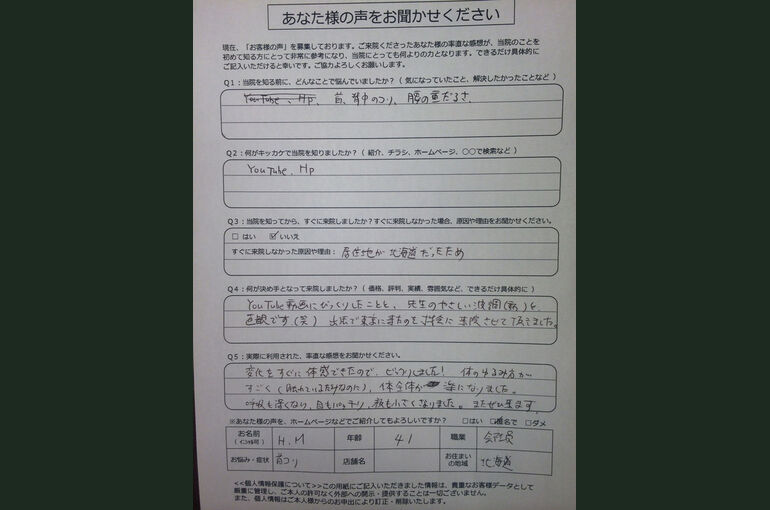 あなた様の声をお聞かせください
現在、「お客様の声」を募集しております。ご来院くださったあなた様の率直な感想が、当院のことを
初めて知る方にとって非常に参考になり、当院にとっても何よりの力となります。できるだけ具体的に
ご記入いただけると幸いです。ご協力よろしくお願いします。
Q1:当院を知る前に、どんなことで悩んでいましたか?(気になっていたこと、解決したかったことなど)
YouTube、Hp、首、背中のコリ、腰の重だるさ、
Q2:何がキッカケで当院を知りましたか?(紹介、チラシ、ホームページ、○○で検索など)
YouTube、Hp
Q3:当院を知ってから、すぐに来院しましたか?すぐに来院しなかった場合、原因や理由をお聞かせください。
□はい ☑いいえ
すぐに来院しなかった原因や理由: 居住地が北海道だったため
Q4:何が決め手となって来院しましたか?(価格、評判、実績、雰囲気など、できるだけ具体的に)
YouTube動画にびっくりしたことと、先生のやさしい
直観です(笑) 出張で東京に来たのを機会に来院させて頂きました。
Q5:実際に利用された、率直な感想をお聞かせください。
変化をすぐに体感できたので、びっくりしました! 体のゆるみ方が
すごく( だけなのに)、体全体が 楽になりました。
呼吸も深くなり、目もパッチリ、顔も小さくなりました。またぜひ来ます。
※あなた様の声を、ホームページなどでご紹介してもよろしいですか? □はい □匿名で □ダメ
お名前 (イニシャル可) H.M 年齢 41 職業 会社員
お悩み・症状 首コリ 店舗名 お住まいの地域 北海道
<<個人情報保護について>>この用紙にご記入いただきました情報は、貴重なお客様データとして
厳重に管理し、ご本人の許可なく外部への開示・提供することは一切ございません。
また、個人情報はご本人様からのお申出により訂正・削除いたします。